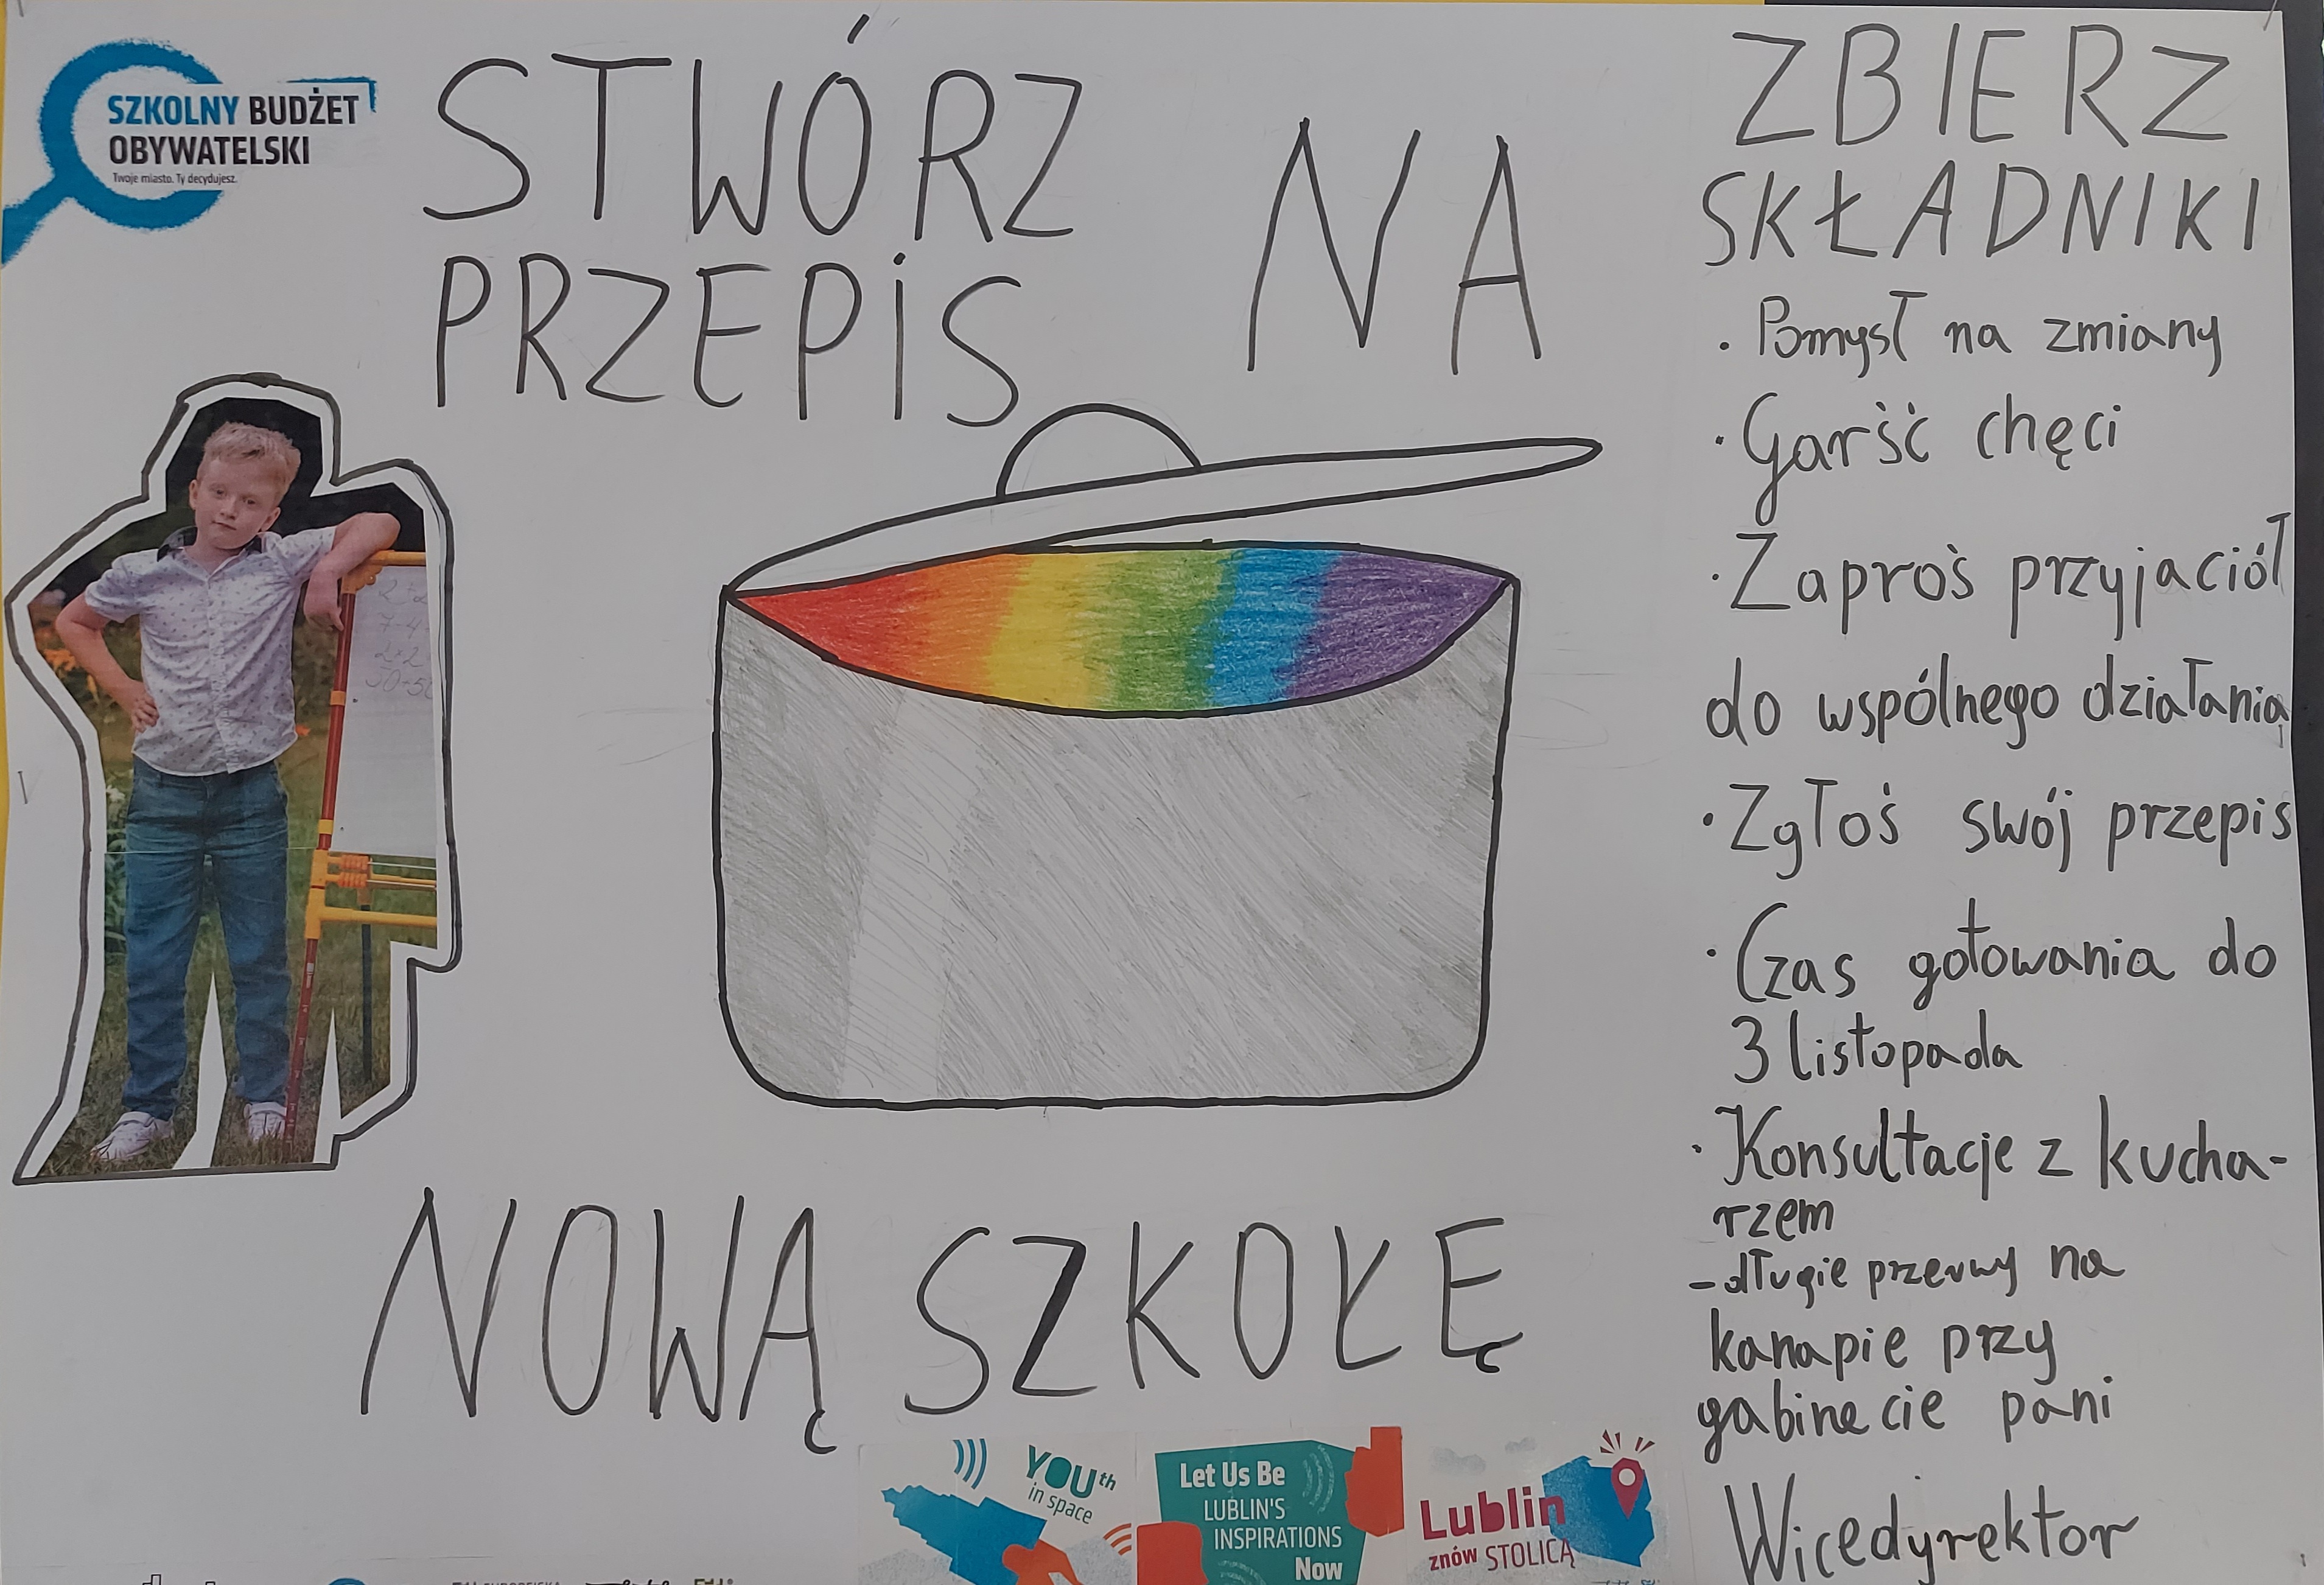 SZKOLNY BUDŻET
OBYWATELSKI
Twoje miasto. Ty decydujesz.
STWÓRZ
PRZEPiS
NA
NOWĄ SZKOŁĘ
ZBIERZ
SKŁADNIKI
· Pomysł na zmiany
· Garść chęci
· Zaproś przyjaciół
do wspólnego działania
· Zgłoś swój przepis
· Czas gotowania do
3 listopada
· Konsultacje z kucha-
rzem
- długie przerwy na
kanapie przy
gabinecie pani
Wicedyrektor
YOUth
in space
Let Us Be
LUBLIN'S
INSPIRATIONS
Now
Lublin
znów STOLICĄ